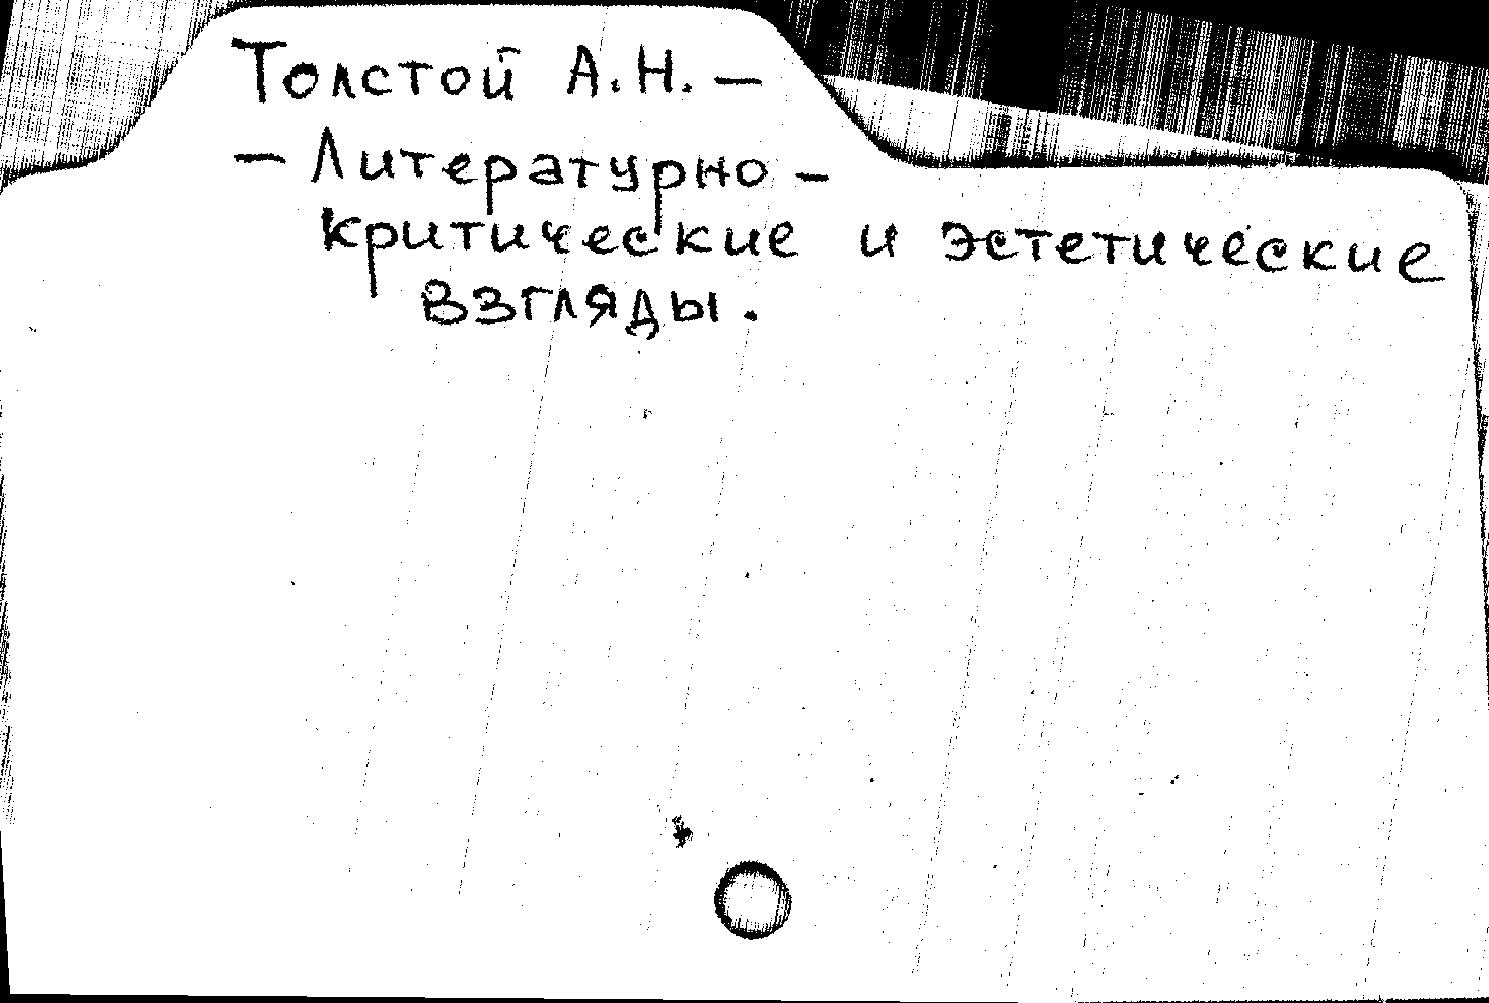 Толстой А.Н. —
— Литературно -
критические и эстетические
взгляды.